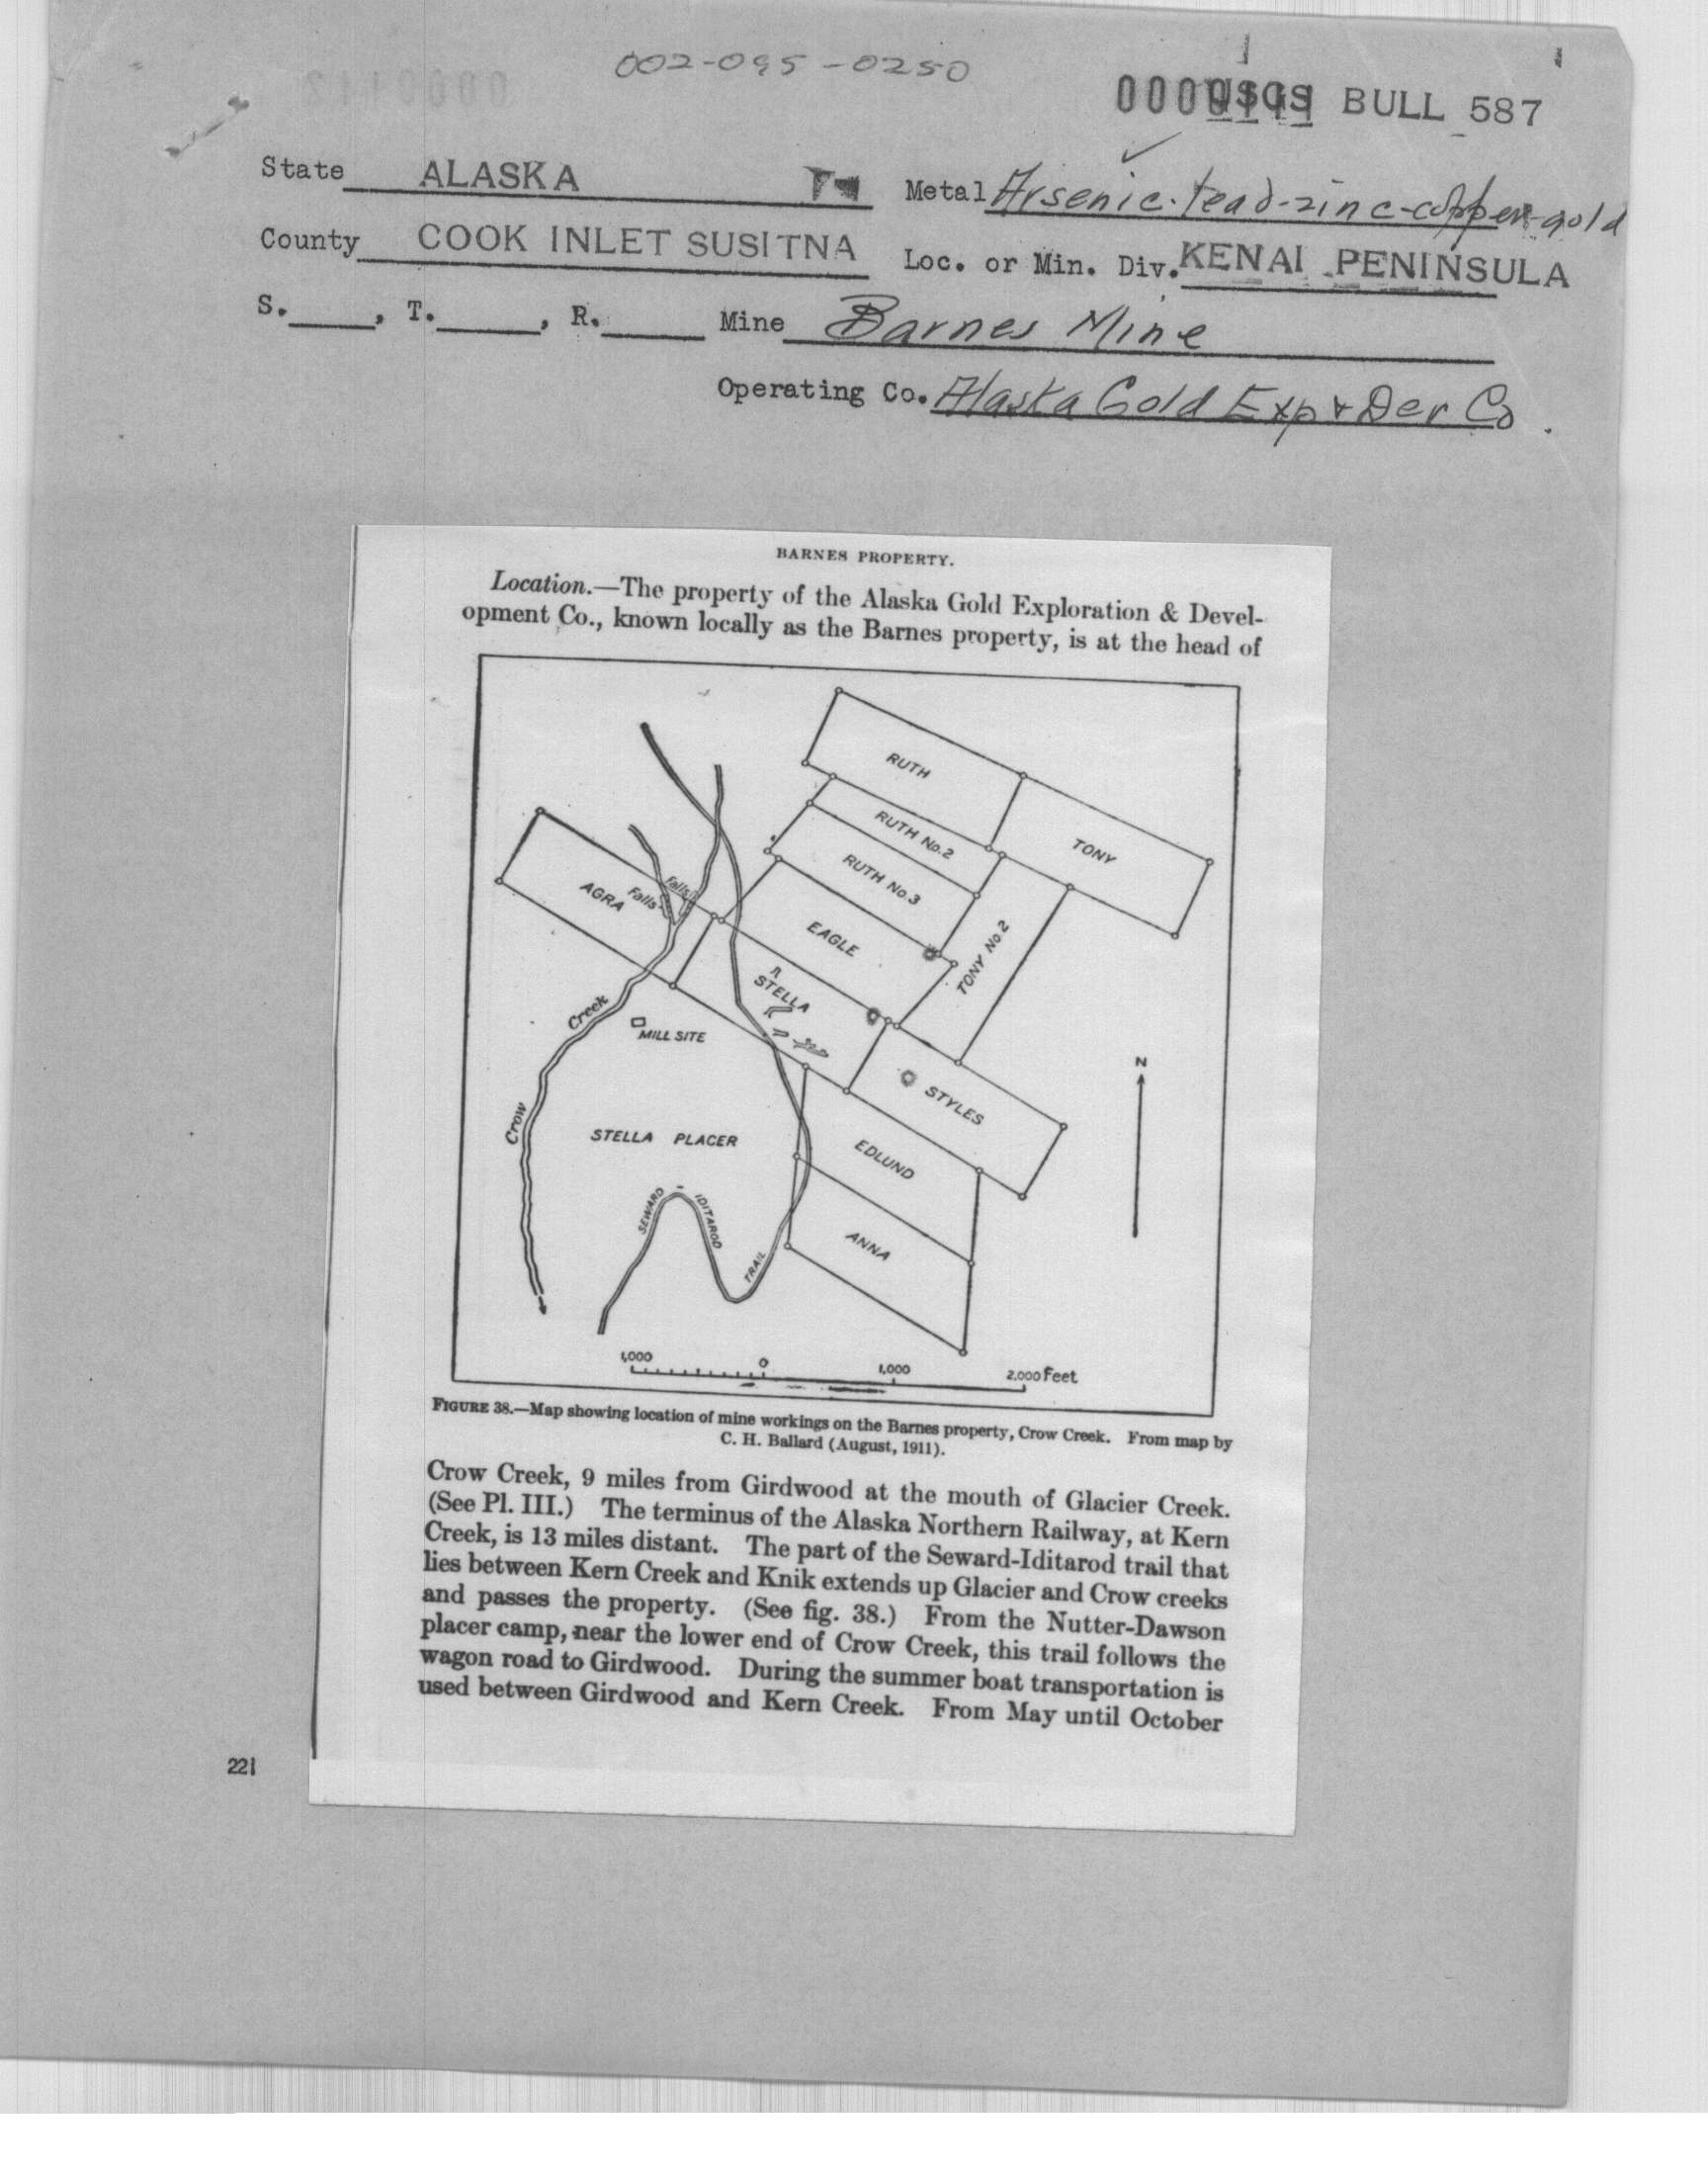 002-095-0250
USGS BULL 587
State ALASKA
Metal Arsenic-lead-zinc-copper-gold
County COOK INLET SUSITNA
Loc. or Min. Div. KENAI PENINSULA
S.____, T.____, R.____ Mine Barnes Mine
Operating Co. Alaska Gold Exp & Dev Co.
BARNES PROPERTY.
Location.—The property of the Alaska Gold Exploration & Devel-
opment Co., known locally as the Barnes property, is at the head of
RUTH
RUTH No.2
TONY
RUTH No.3
AGRA
Falls
Falls
EAGLE
TONY No.2
STELLA
Creek
MILL SITE
N
STYLES
Crow
STELLA PLACER
EDLUND
SEWARD - IDITAROD TRAIL
ANNA
1,000 0 1,000 2,000 Feet
FIGURE 38.—Map showing location of mine workings on the Barnes property, Crow Creek. From map by
C. H. Ballard (August, 1911).
Crow Creek, 9 miles from Girdwood at the mouth of Glacier Creek.
(See Pl. III.) The terminus of the Alaska Northern Railway, at Kern
Creek, is 13 miles distant. The part of the Seward-Iditarod trail that
lies between Kern Creek and Knik extends up Glacier and Crow creeks
and passes the property. (See fig. 38.) From the Nutter-Dawson
placer camp, near the lower end of Crow Creek, this trail follows the
wagon road to Girdwood. During the summer boat transportation is
used between Girdwood and Kern Creek. From May until October
221